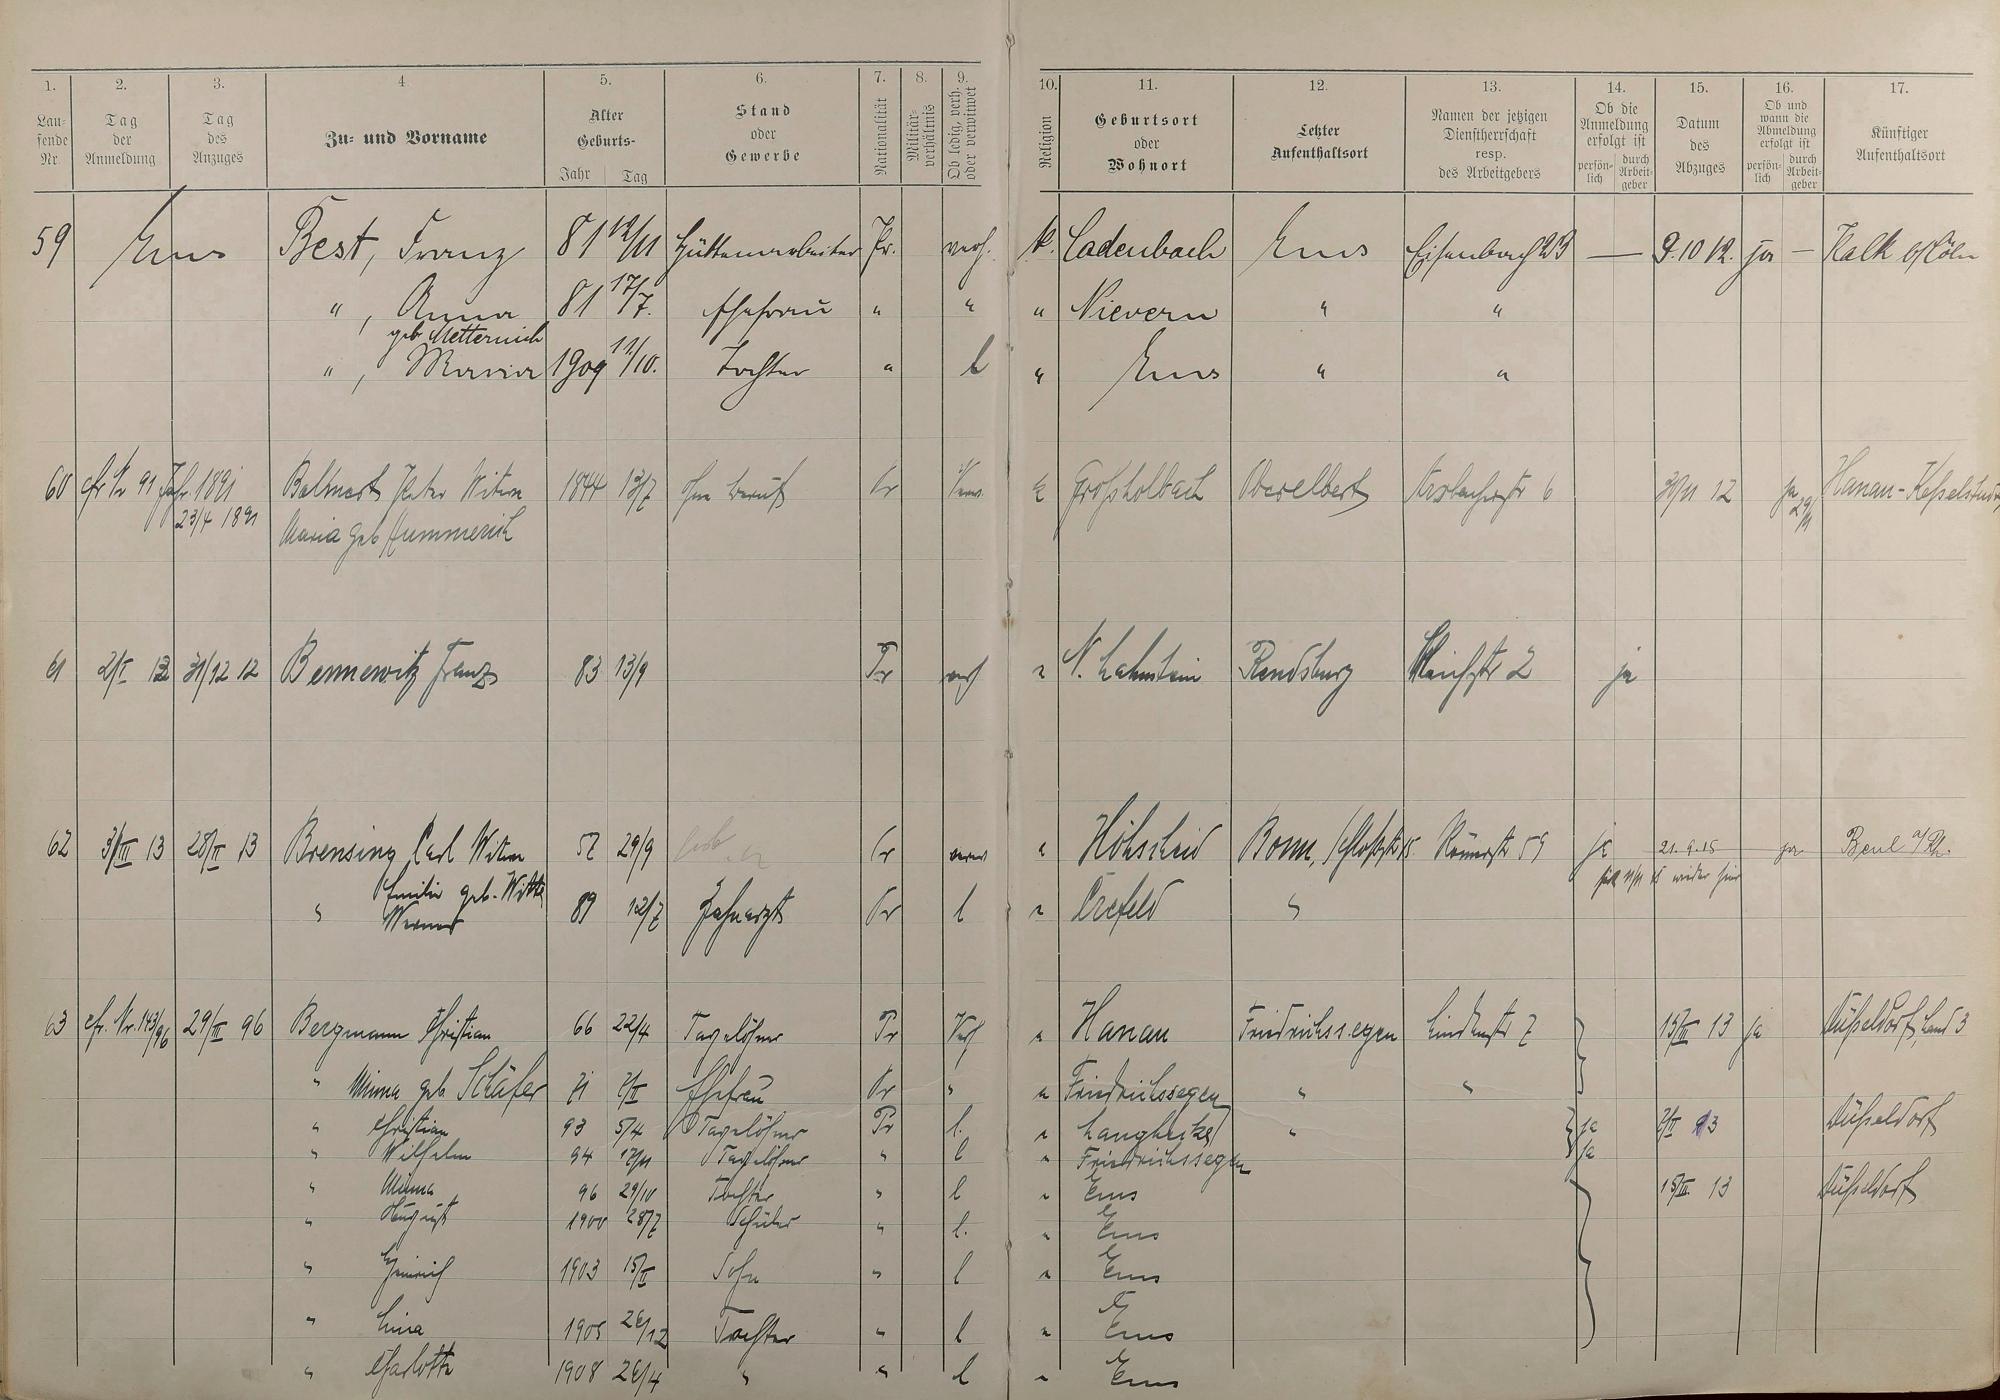 1. 2. 3. 4. 5. 6. 7. 8. 9. 10. 11. 12. 13. 14. 15. 16. 17.
Lau-
fende
Nr.
Tag
der
Anmeldung
Tag
des
Anzuges
Zu- und Vorname
Alter
Geburts-
Jahr Tag
Stand
oder
Gewerbe
Nationalität
Militär-
verhältnis
Ob ledig, verh.
oder verwitwet
Religion
Geburtsort
oder
Wohnort
Letzter
Aufenthaltsort
Namen der jetzigen
Dienstherrschaft
resp.
des Arbeitgebers
Ob die
Anmeldung
erfolgt ist
persön-
lich
durch
Arbeit-
geber
Datum
des
Abzuges
Ob und
wann die
Abmeldung
erfolgt ist
persön-
lich
durch
Arbeit-
geber
Künftiger
Aufenthaltsort
59 Ems Best, Franz 81 12/11 Hüttenarbeiter Pr. verh. k. Cadenbach Ems — 9.10 12. ja — Kalk b/Cöln
" , Anna 81 17/7. Ehefrau " " " Nievern " "
geb. Metternich
" , Maria 1909 11/10. Tochter " l " Ems " "
60 cfr Nr 91 Jahr 1891 Peter Witwe 1844 13/7 ohne Beruf Pr Großholbach Oberelbert 6 30/11 12 ja Hanau-Kesselstadt
23/4 1891 Maria geb Hummerich 29/11
61 2/I 13 31/12 12 Bennewitz Franz 83 13/9 Pr verh " N. Lahnstein Rendsburg 2 ja
62 3/III 13 28/II 13 Brensing Carl Witwe 52 29/9 Pr " Höhscheid Bonn, Römerstr 59 ja 21.9.15 ja Beul a/Rh.
Emilie geb. Witte wieder hier
" Werner 89 12/7 Zahnarzt Pr l " Crefeld "
63 cfr. Nr. 143/96 29/II 96 Bergmann Christian 66 22/4 Tagelöhner Pr Verh " Hanau Friedrichssegen Lindenstr 7 15/III 13 ja Düsseldorf,
" Minna geb. Schäfer 71 7/II Ehefrau Pr " " Friedrichssegen " "
" Christian 93 5/4 Tagelöhner Pr l. " Langhecke " ja 7/II 13 Düsseldorf
" Wilhelm 94 17/11 Tagelöhner " l " Friedrichssegen ja
" Minna 96 29/10 Tochter " l " Ems 15/III 13 Düsseldorf
" August 1900 28/7 Schüler " l. " Ems
" Heinrich 1903 15/II Sohn " l " Ems
" Lina 1905 26/12 Tochter " l " Ems
" Charlotte 1908 26/4 " " l " Ems